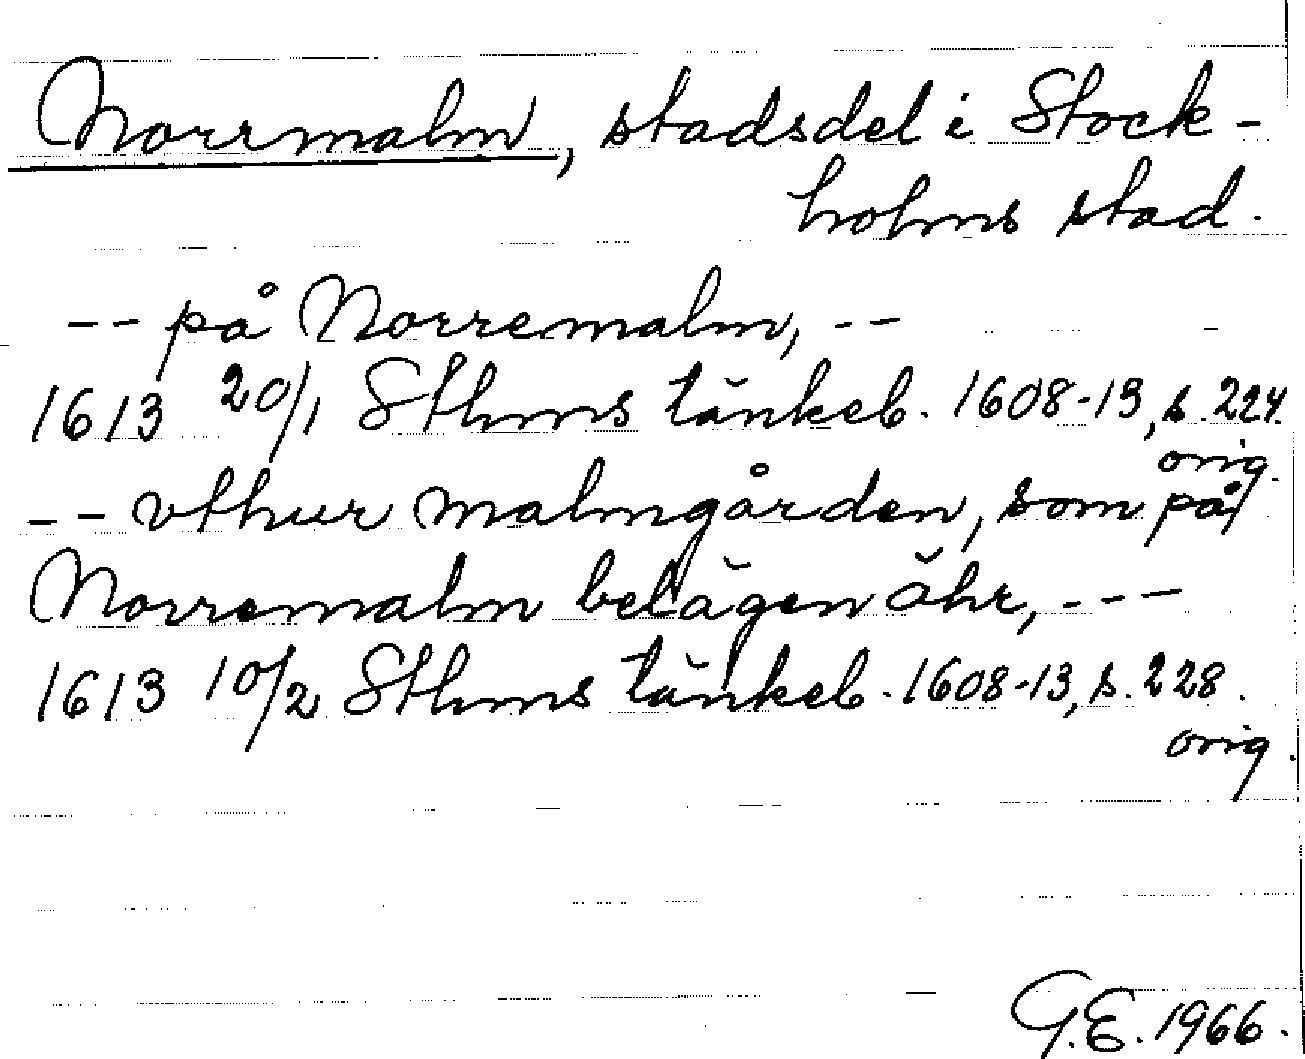 Norrmalm, stadsdel i Stock-
holms stad.
-- på Norremalm, --
1613 20/1 Sthms tänkeb. 1608-13, s. 224.
orig.
-- vthur malmgården, som på
Norremalm belägen ähr, ---
1613 10/2 Sthms tänkeb. 1608-13, s. 228.
orig.
G.E. 1966.